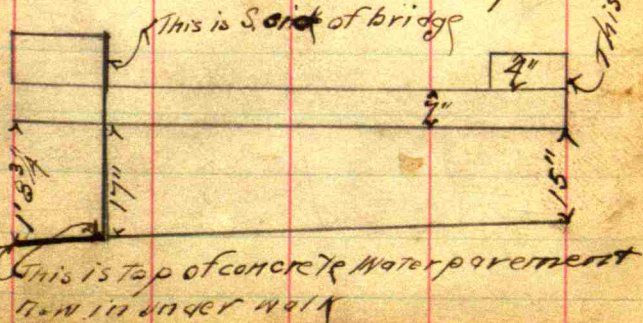 This is S. side of bridge
This
4"
7"
1' 8 3/4
17"
15"
This is top of concrete water pavement
now in under walk